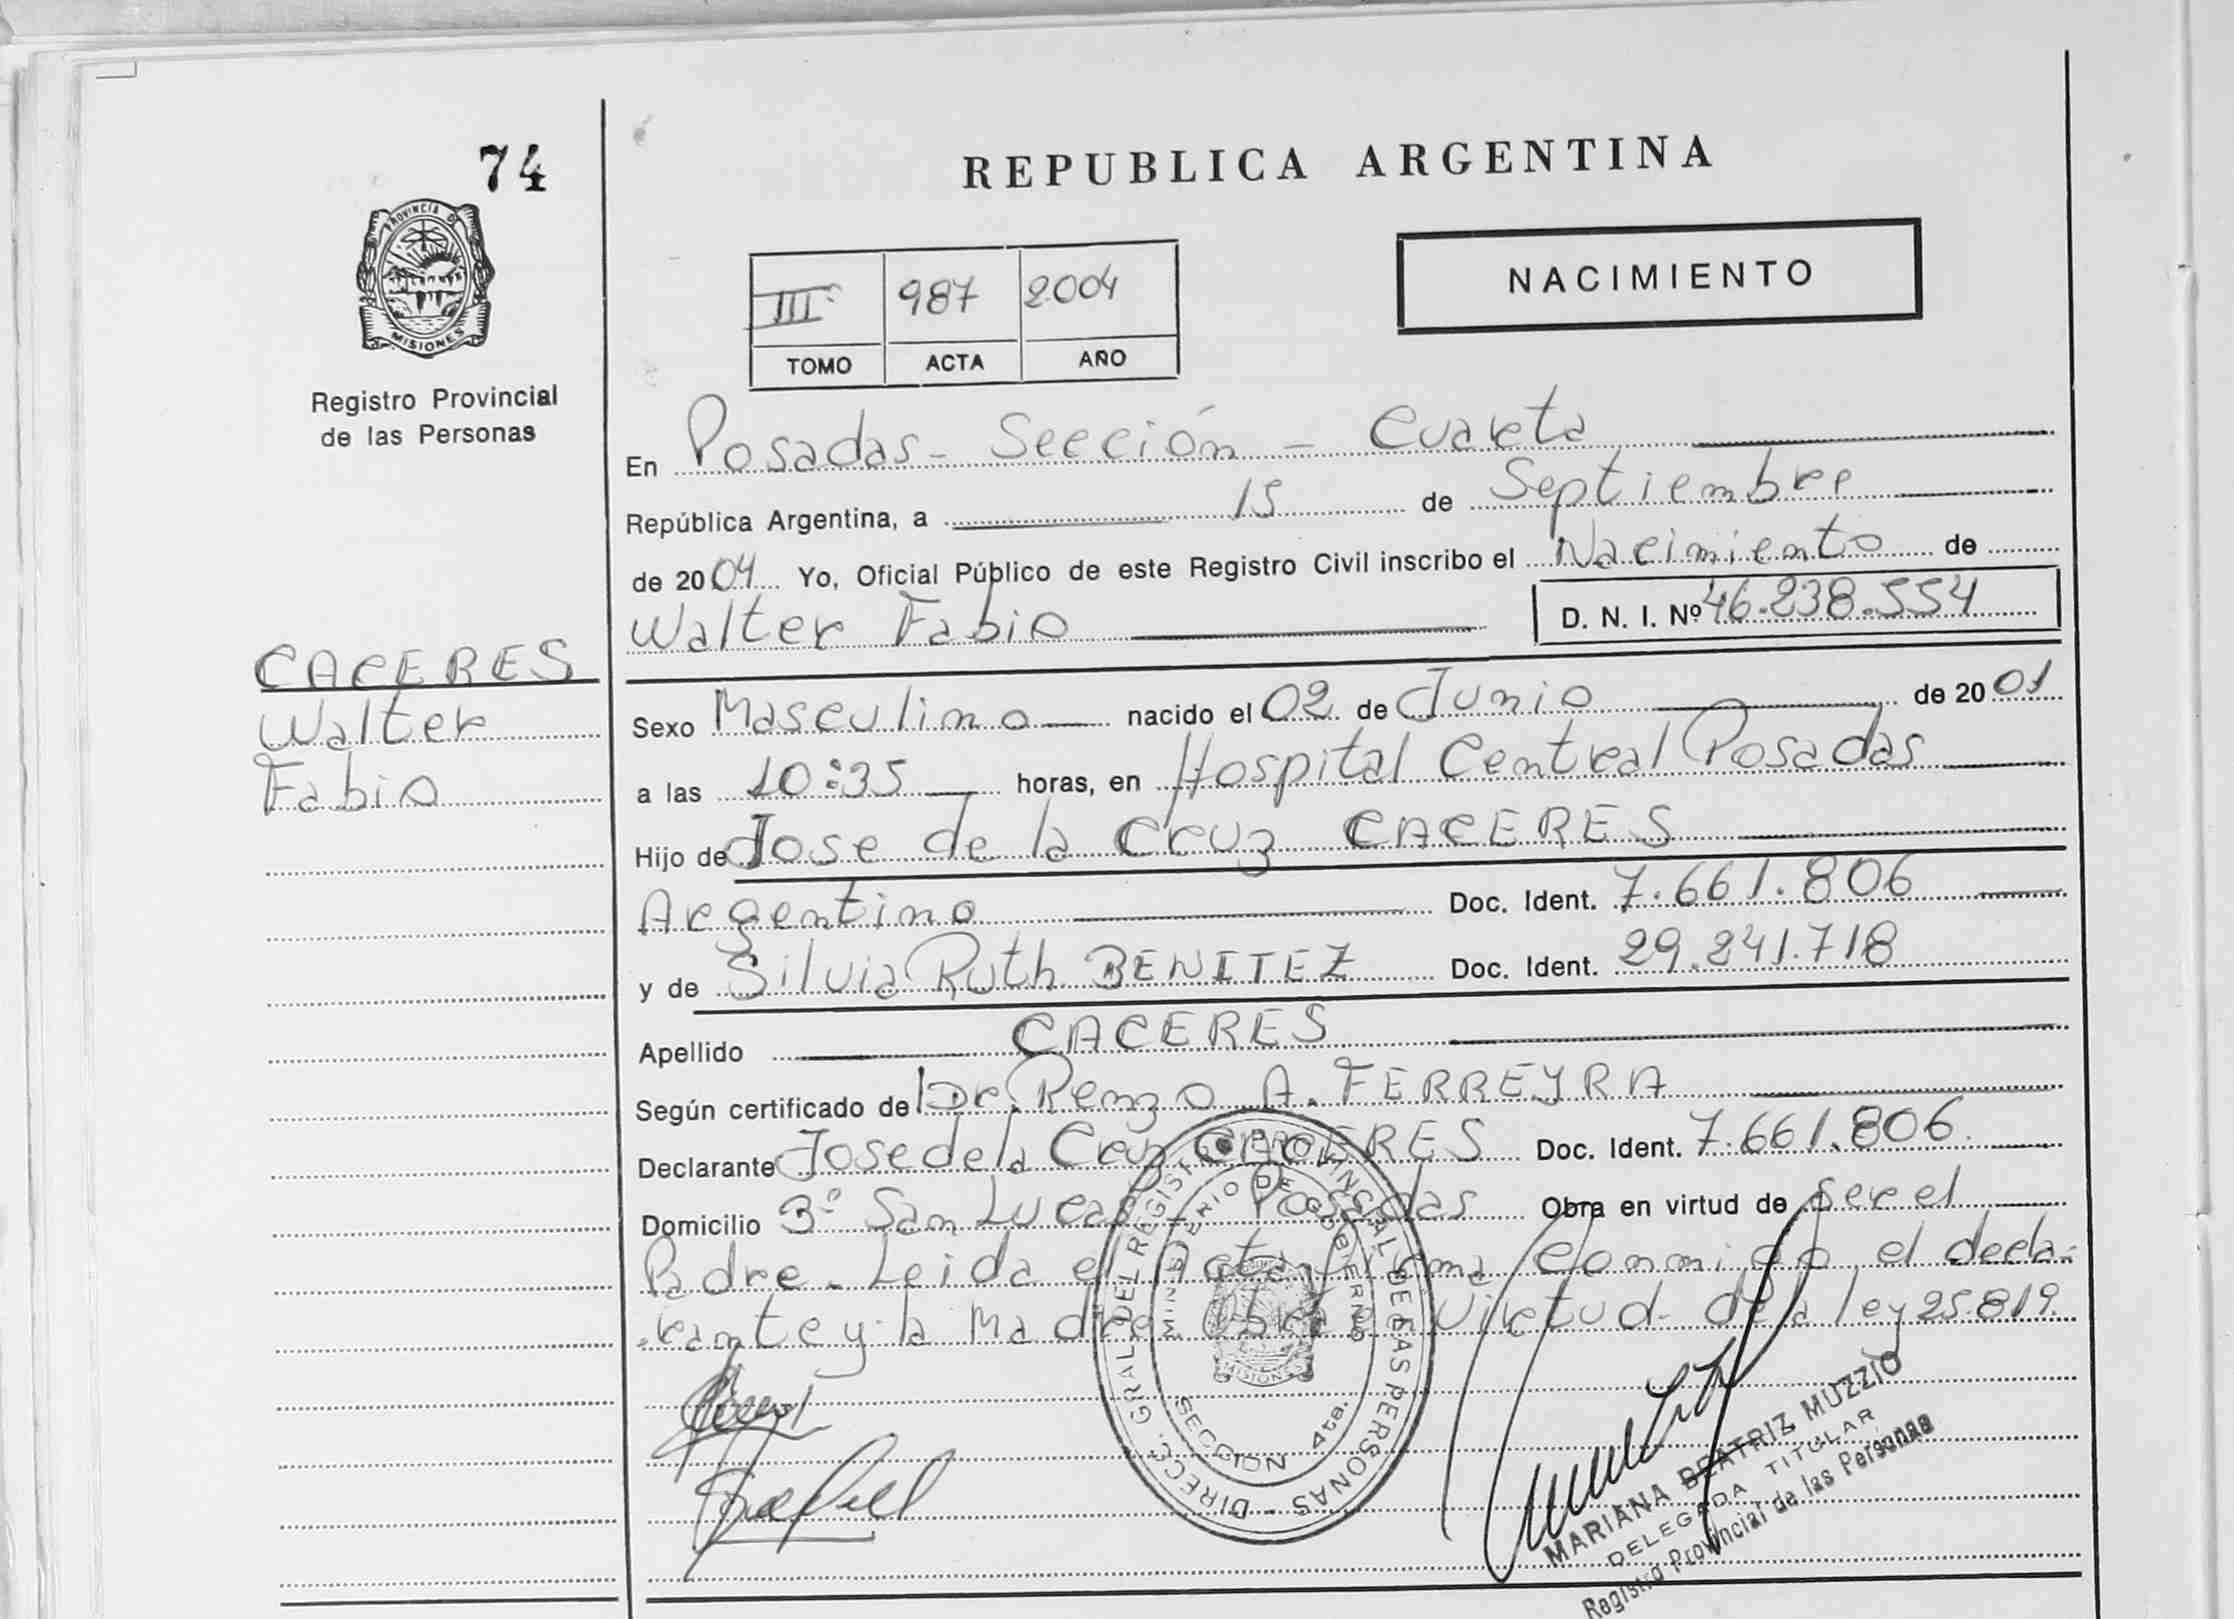 74
PROVINCIA DE
MISIONES
Registro Provincial
de las Personas
REPUBLICA ARGENTINA
NACIMIENTO
III 987 2004
TOMO ACTA AÑO
En Posadas - Sección - Cuarta
República Argentina, a 15 de Septiembre
de 2004 Yo, Oficial Público de este Registro Civil inscribo el Nacimiento de
Walter Fabio D. N. I. Nº 46.238.554
CACERES
Walter
Fabio
Sexo Masculino nacido el 02 de Junio de 2001
a las 10:35 horas, en Hospital Central Posadas
Hijo de Jose de la Cruz CACERES
Argentino Doc. Ident. 7.661.806
y de Silvia Ruth BENITEZ Doc. Ident. 29.241.718
Apellido CACERES
Según certificado de Dr. Renzo A. FERREYRA
Declarante Jose de la Cruz CACERES Doc. Ident. 7.661.806
Domicilio 3º San Lucas - Posadas Obra en virtud de ser el
Padre - Leida el Acta firma Conmigo el decla-
rante y la Madre Obra Virtud de la ley 25.819.
DIRECC. GRAL. DEL REGISTRO PROVINCIAL DE LAS PERSONAS
MINISTERIO DE GOBIERNO
MISIONES
SECCION 4ta.
MARIANA BEATRIZ MUZZIO
DELEGADA TITULAR
Registro Provincial de las Personas